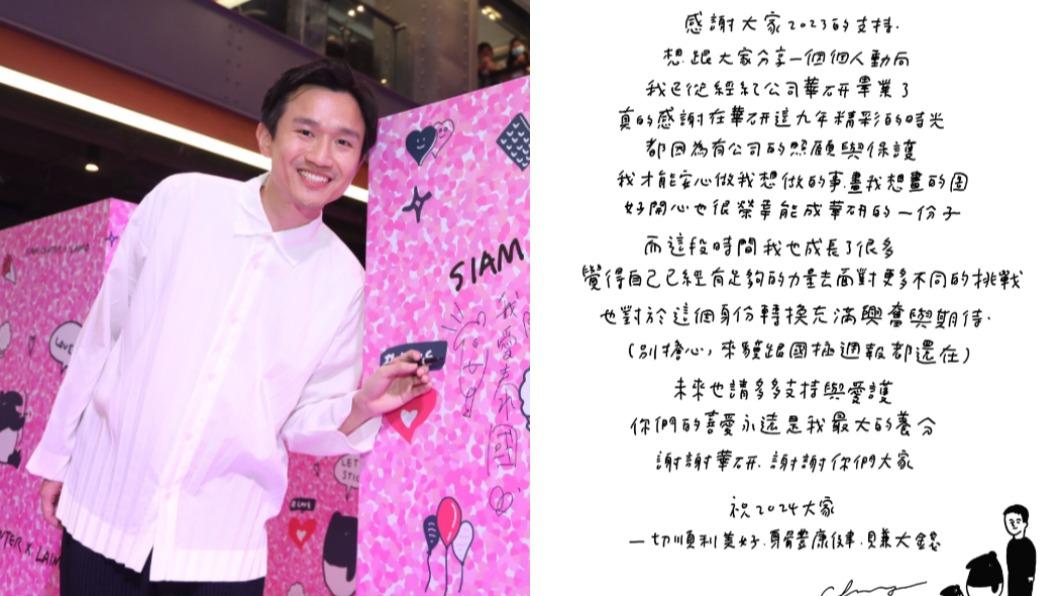 SIAM
我愛泰國
LOVE
感謝大家2023的支持.
想跟大家分享一個個人動向
我已從經紀公司華研畢業了
真的感謝在華研這九年精彩的時光
都因為有公司的照顧與保護
我才能安心做我想做的事.畫我想畫的圖
好開心也很榮幸能成華研的一份子
而這段時間我也成長了很多
覺得自己已經有足夠的力量去面對更多不同的挑戰
也對於這個身份轉換充滿興奮與期待.
(別擔心,來貘跟國極週報都還在)
未來也請多多支持與愛護
你們的喜愛永遠是我最大的養分
謝謝華研.謝謝你們大家
祝2024大家
一切順利美好.身體康健.賺大錢